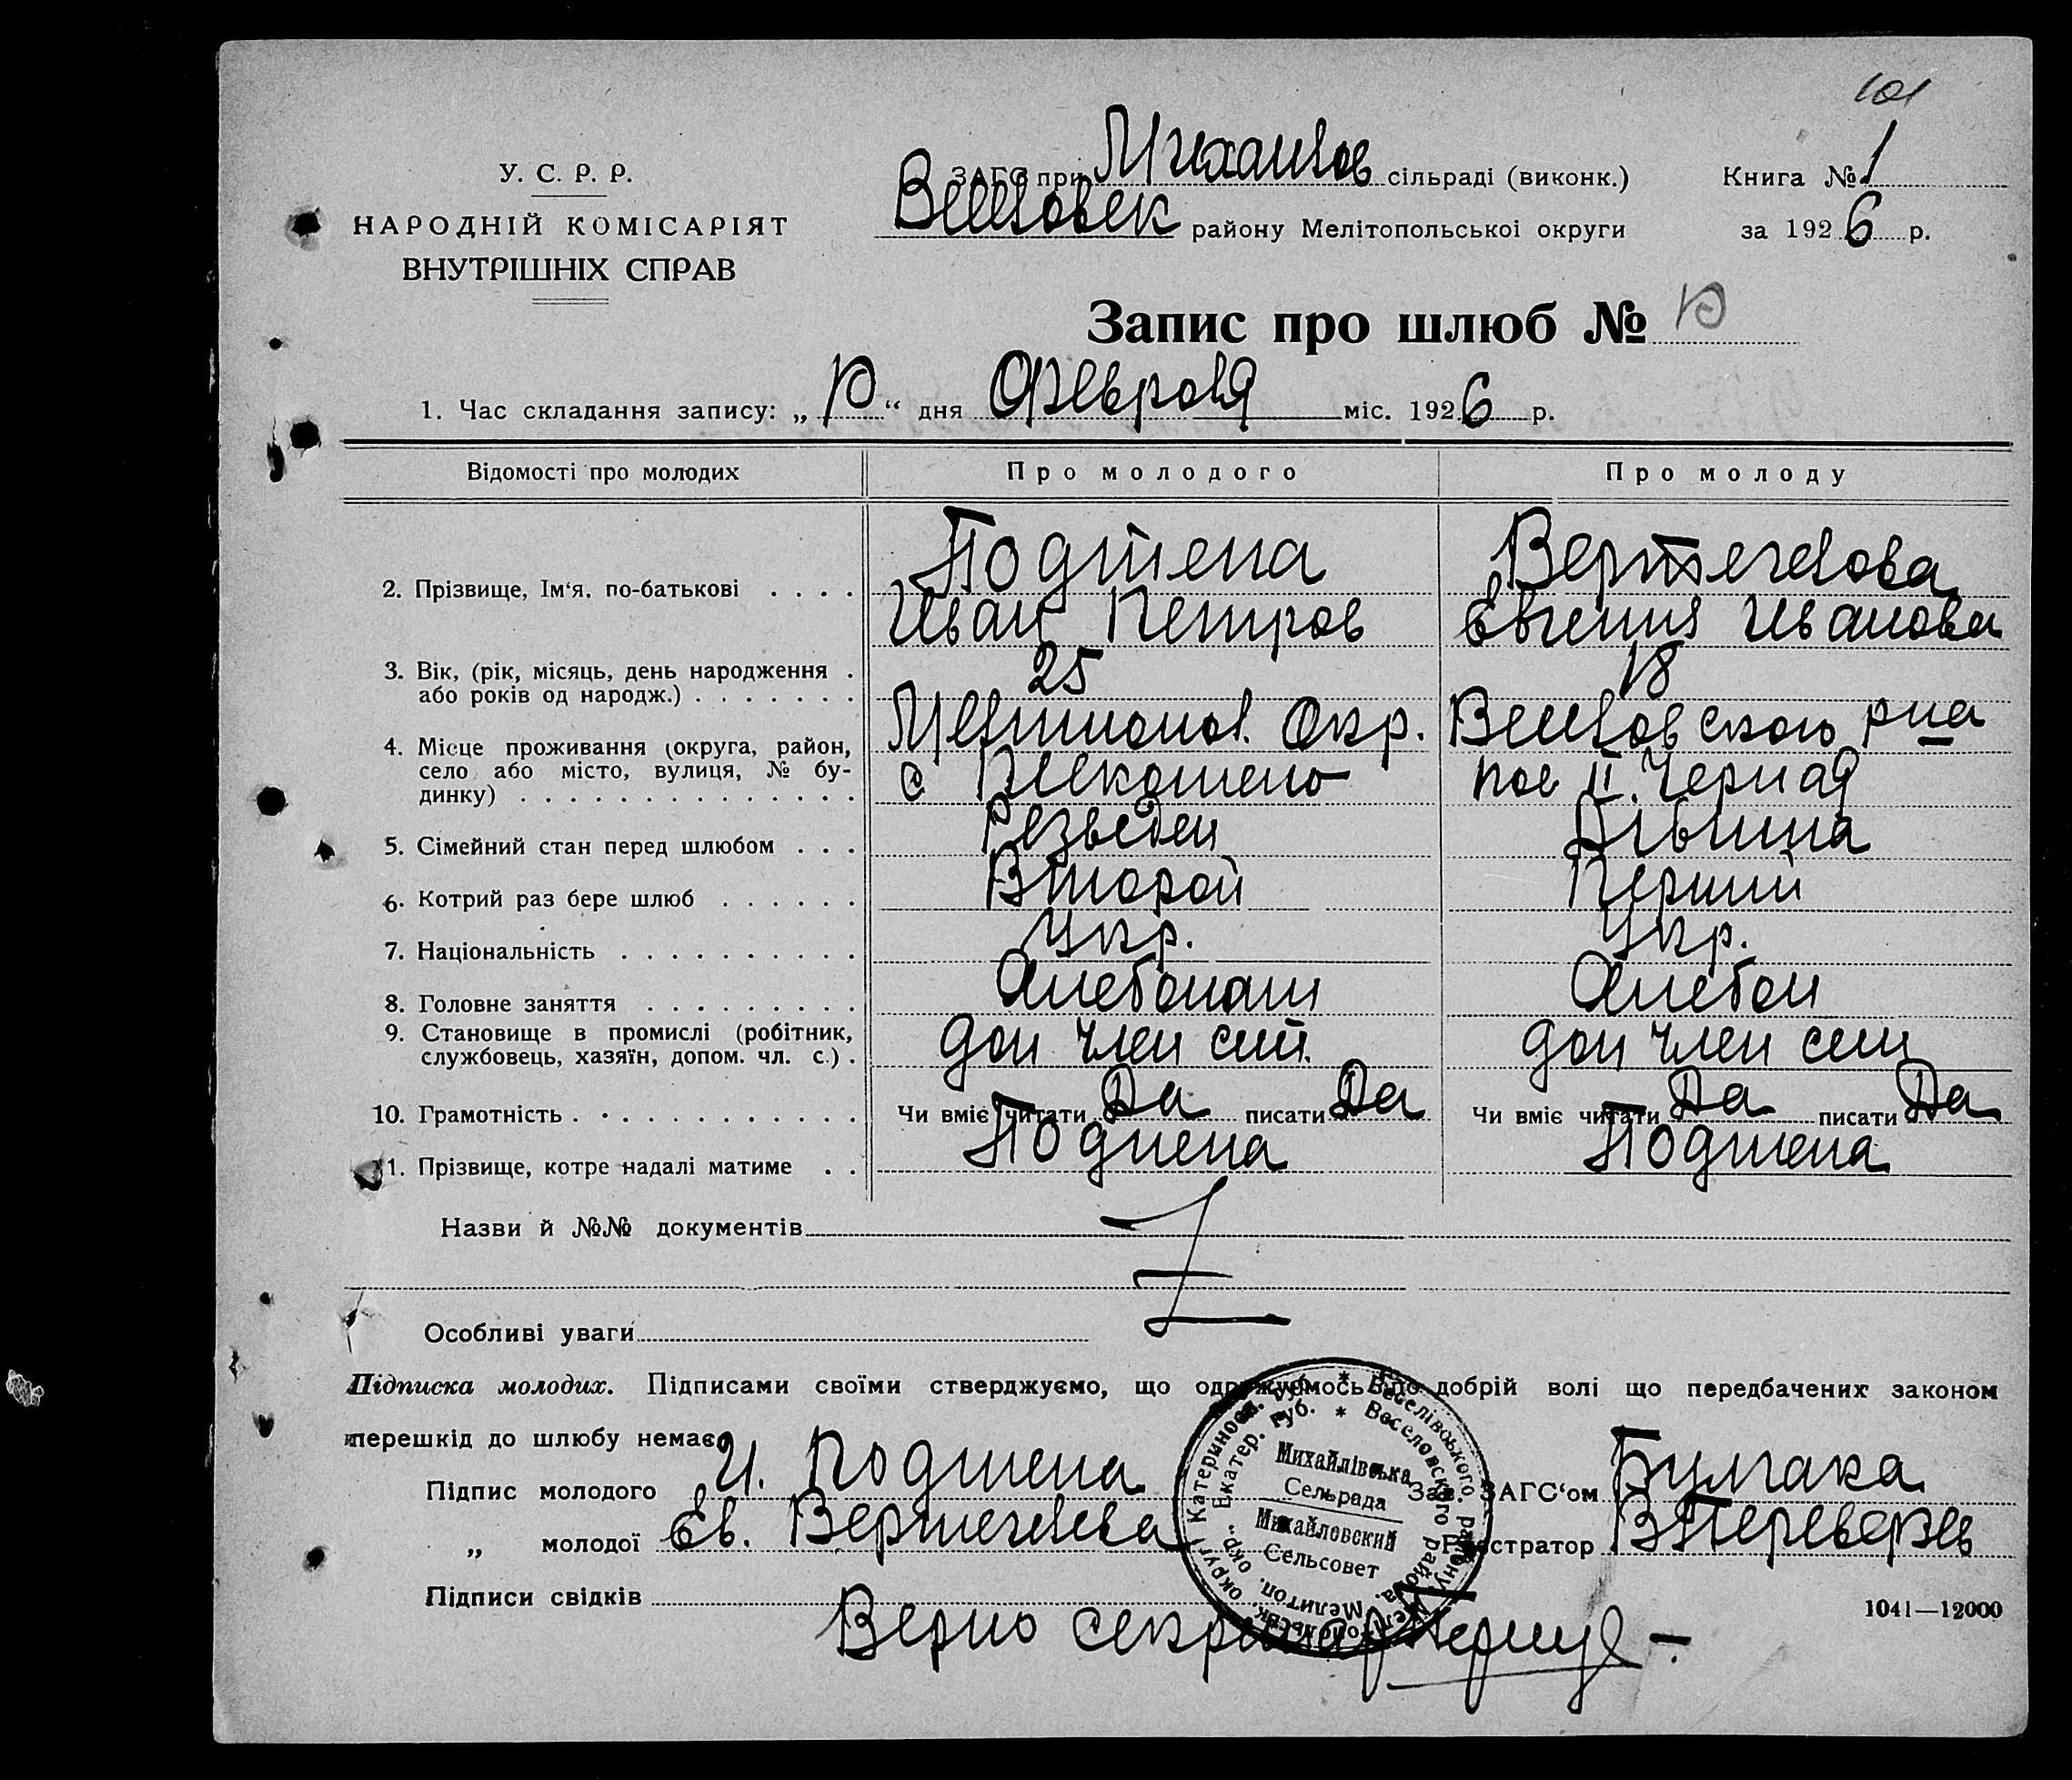 101
У. С. Р. Р.
НАРОДНІЙ КОМІСАРІЯТ
ВНУТРІШНІХ СПРАВ
ЗАГС при Михайлов сільраді (виконк.)
Веселовск району Мелітопольської округи
Книга № 1
за 1926 р.
Запис про шлюб № 10
1. Час складання запису: „10“ дня Февраля міс. 1926 р.
Відомості про молодих Про молодого Про молоду
2. Прізвище, Ім‘я, по-батькові . . . .
Подмена
Иван Петров
Евгения Иванова
3. Вік, (рік, місяць, день народження .
або років од народж.) . . . . . . .
25 18
4. Місце проживання (округа, район,
село або місто, вулиця, № бу-
динку) . . . . . . . . . . . . .
Мелитопол. Окр.
с
Веселовского р-на
пос II.
5. Сімейний стан перед шлюбом . . . Розведен Дівчина
6. Котрий раз бере шлюб . . . . . . Второй Перший
7. Національність . . . . . . . . . . Укр. Укр.
8. Головне заняття . . . . . . . . . Хлебопаш Хлебоп
9. Становище в промислі (робітник,
службовець, хазяїн, допом. чл. с.) .
доп член сем. доп член сем
10. Грамотність . . . . . . . . . . . . Чи вміє читати Да писати Да Чи вміє читати Да писати Да
11. Прізвище, котре надалі матиме . . Подмена Подмена
Назви й №№ документів
Особливі уваги
Підписка молодих. Підписами своїми стверджуємо, що одружуємось по добрій волі що передбачених законом
перешкід до шлюбу немає
Підпис молодого И. Подмена
„ молодої Ев.
Підписи свідків
Зав. ЗАГС‘ом Булгака
Реєстратор
Михайлівська
Сельрада
Михайловский
Сельсовет
1041—12000
Верно секретарь